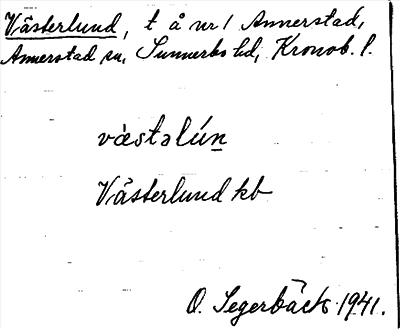 Västerlund, t å nr 1 Annerstad,
Annerstad sn, Sunnerbo hd, Kronob. l.
væ̀stəlún
Västerlund kb
O. Segerbäck 1941.